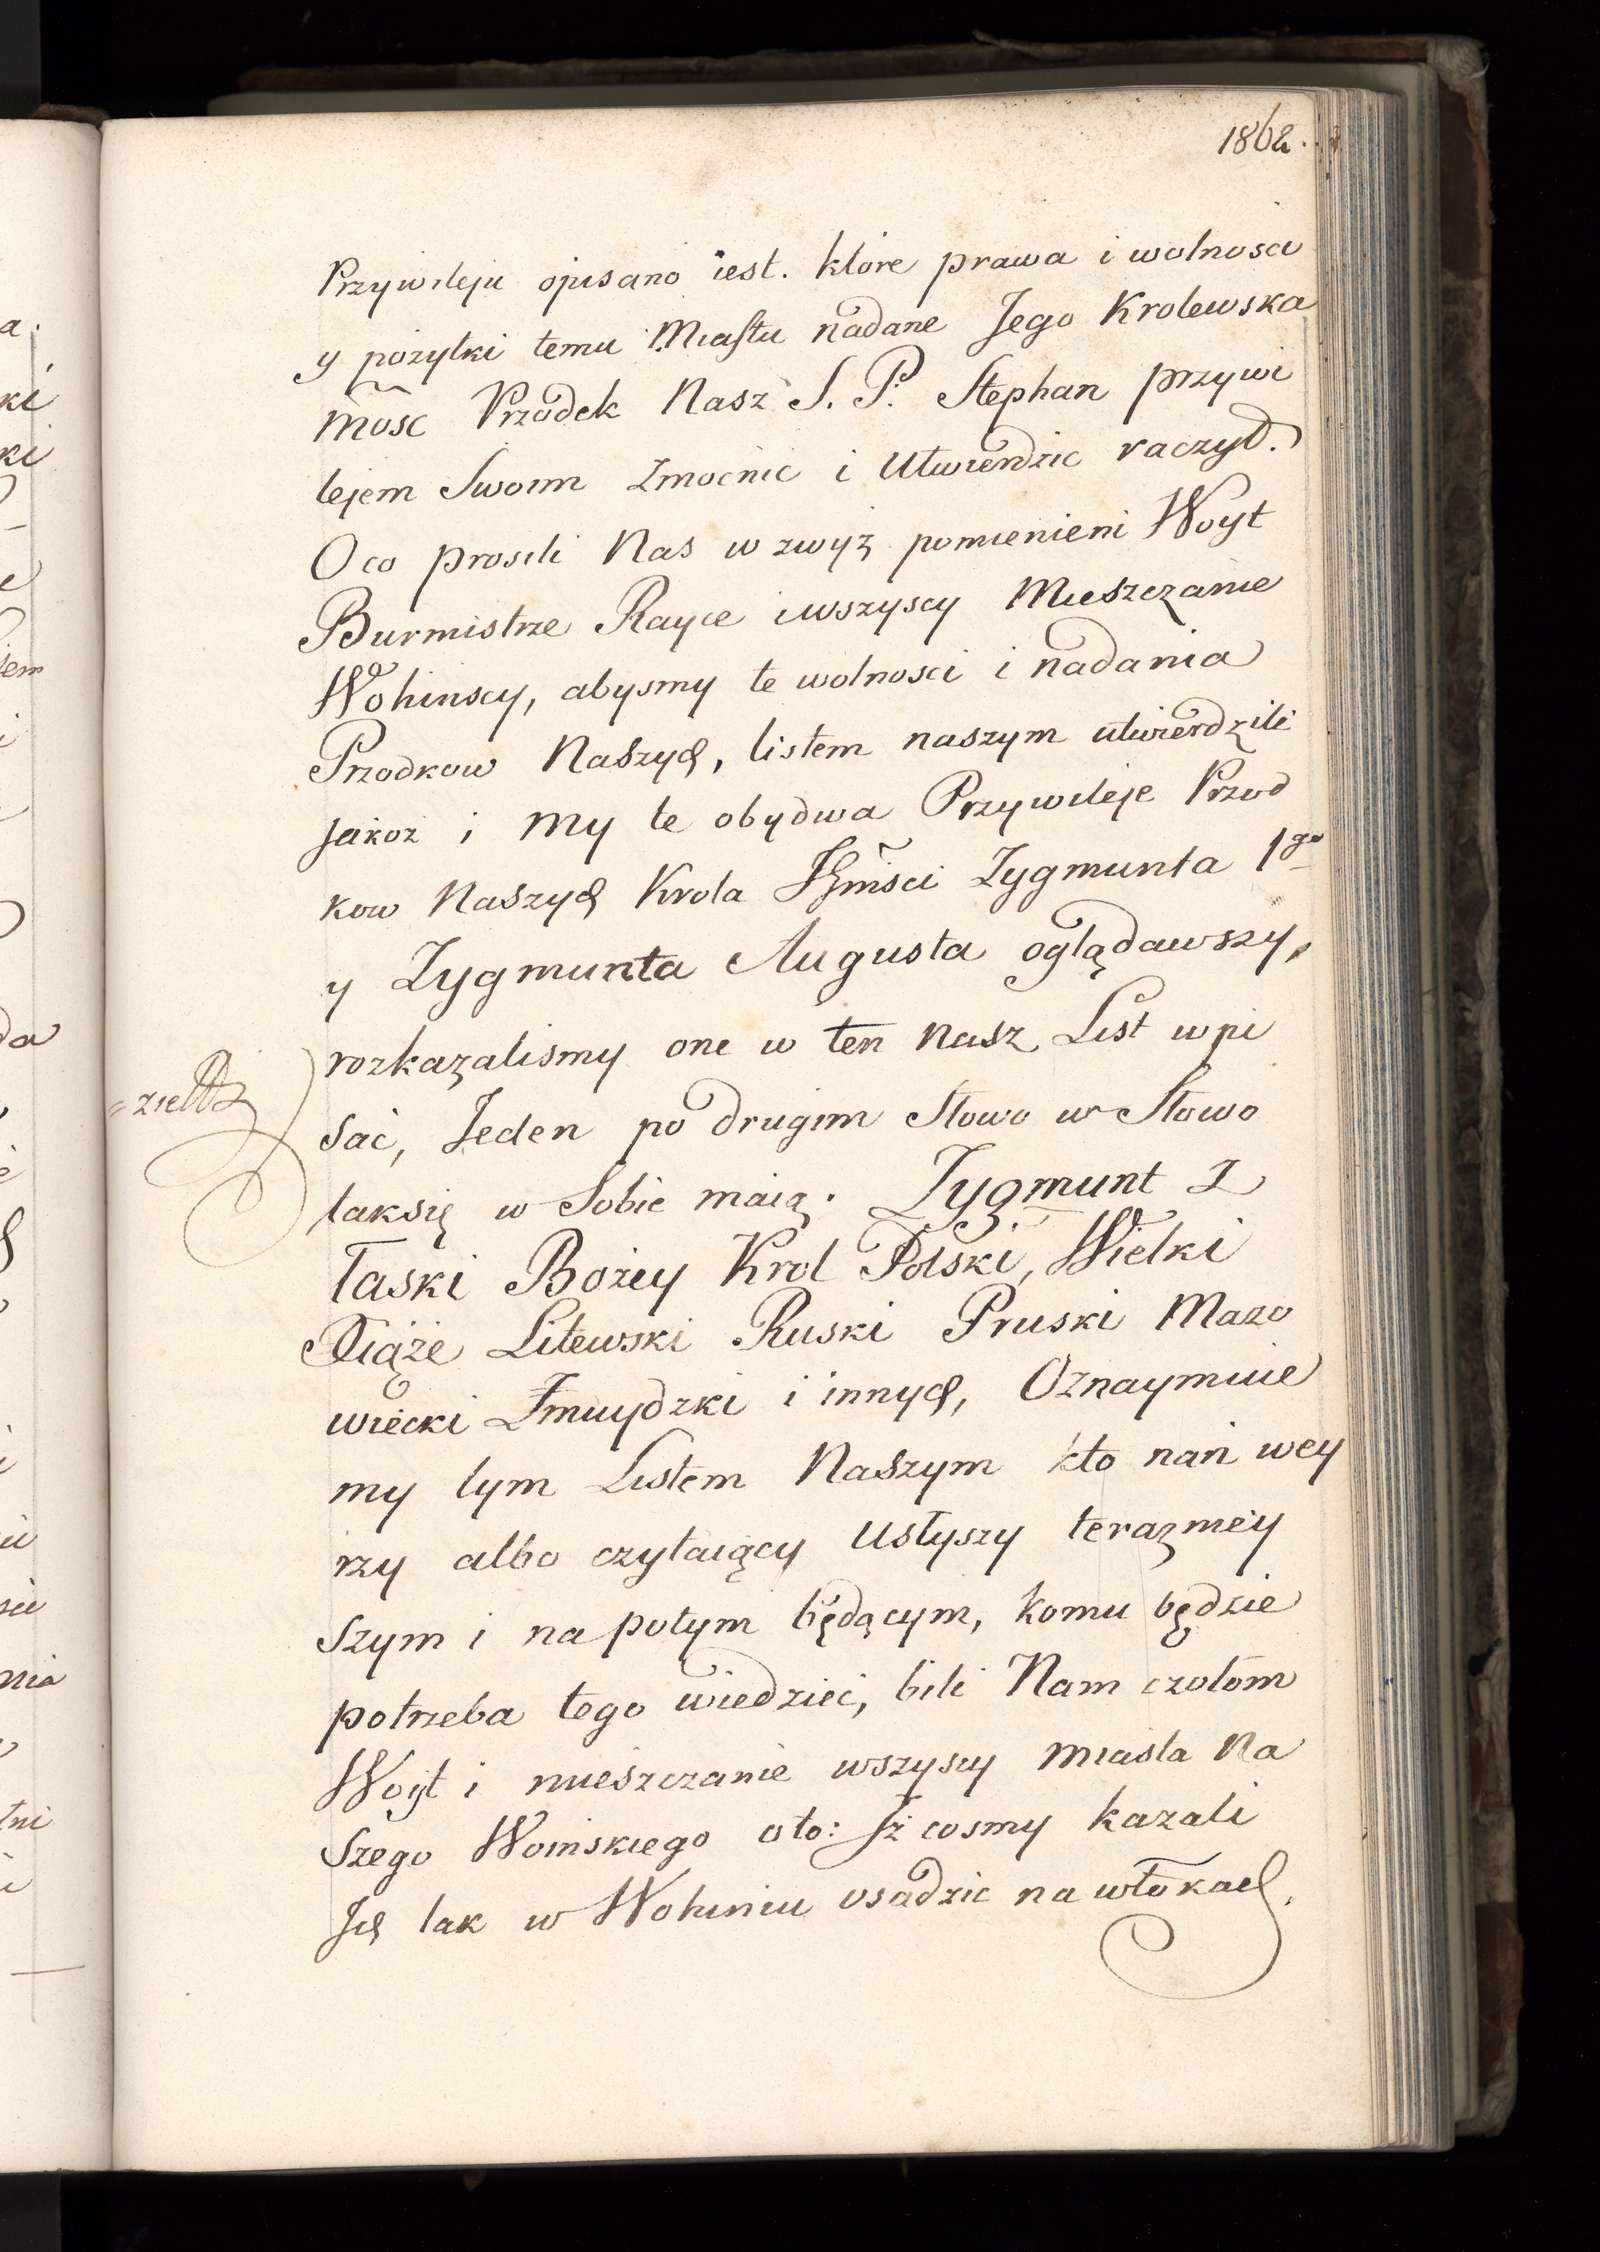 1862.
Przywileju opisano iest. które prawa i wolności
y pożytki temu Miastu nadane Jego Krolewska
Mość Przodek Nasz S. P. Stephan przywi
lejem Swoim Zmocnić i Utwierdzić raczył.
O co prosili Nas w zwyż pomienieni Woyt
Burmistrze Rayce i wszyscy Mieszczanie
Wohinscy, abysmy te wolnosci i nadania
Przodkow Naszych, listem naszym utwierdzili
Jakoż i My te obydwa Przywileje Przod
kow Naszych Krola Jgmsci Zygmunta 1go
y Zygmunta Augusta oglądawszy,
rozkazalismy one w ten Nasz List wpi
sać, Jeden po drugim Słowo w Słowo
tak się w Sobie maią. Zygmunt Z
łaski Bożey Krol Polski, Wielki
Xiąże Litewski Ruski Pruski Mazo
wiecki Żmuydzki i innych, Oznaymuie
my tym Listem Naszym kto nań wey
rzy albo czytaiący Usłyszy terazniey
szym i na potym będącym, komu będzie
potrzeba tego wiedzieć, bili Nam czołom
Woyt i mieszczanie wszyscy miasta Na
szego Woińskiego oto: Jż cosmy kazali
Ich tak w Wohiniu osadzic na włokach.